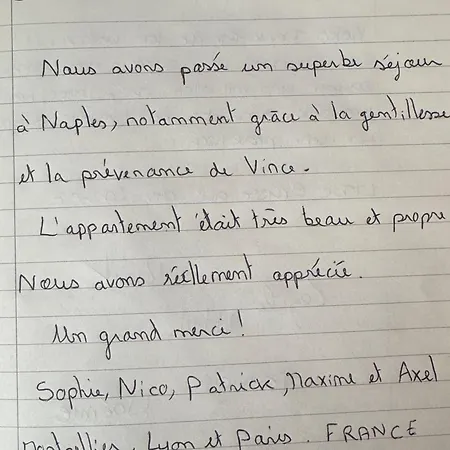 Nous avons passé un superbe séjour
à Naples, notamment grâce à la gentillesse
et la prévenance de Vince.
L'appartement était très beau et propre
Nous avons réellement apprécié.
Un grand merci !
Sophie, Nico, Patrick, Maxime et Axel
Montpellier, Lyon et Paris. FRANCE